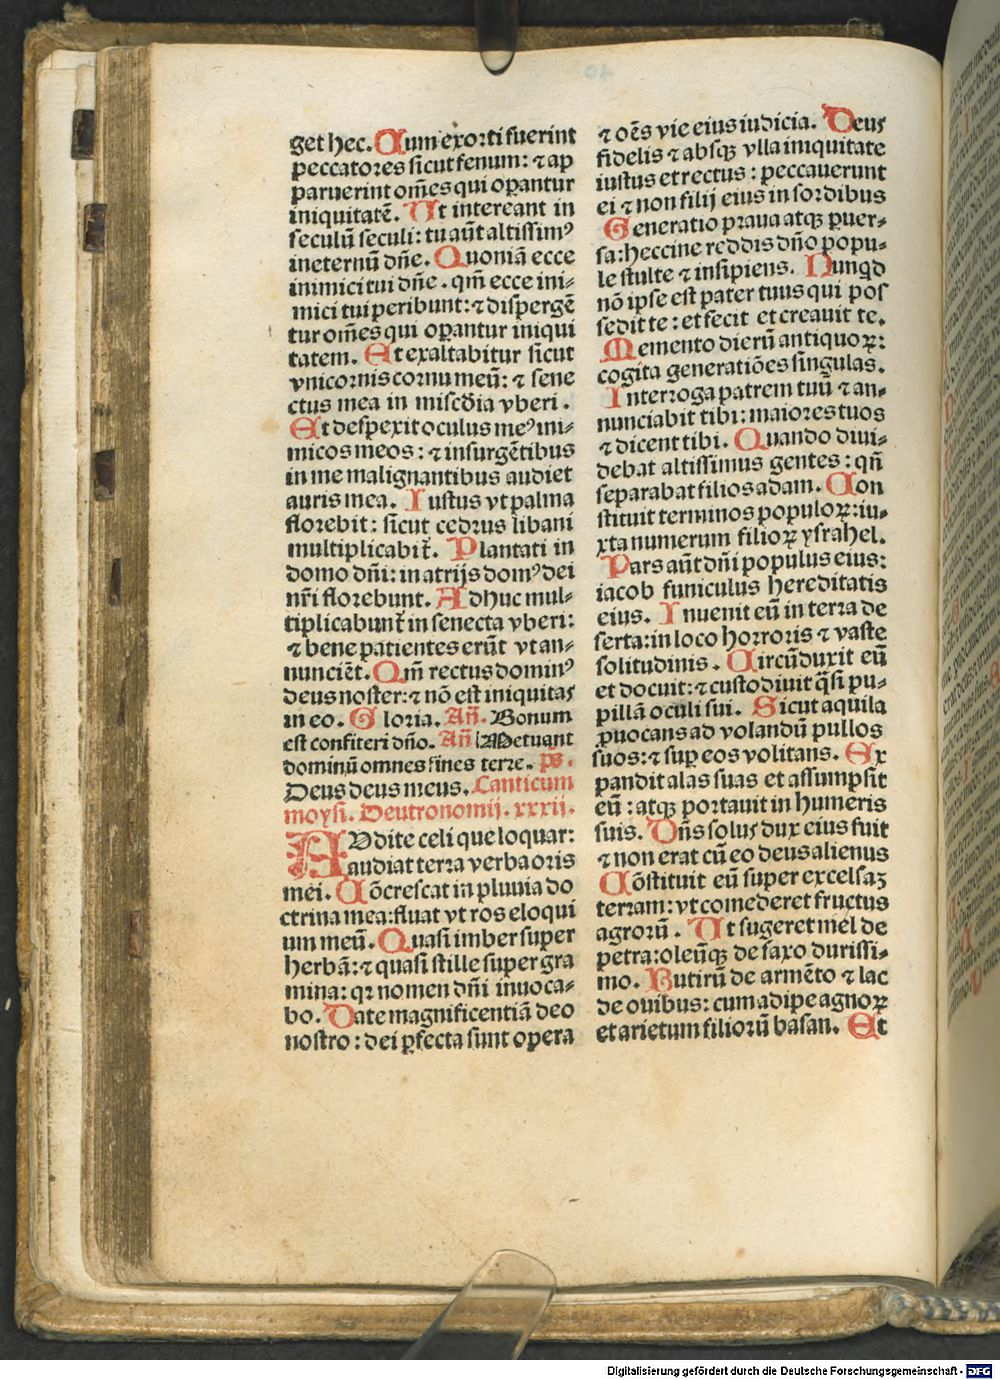 get hec. Cum exorti fuerint
peccatores sicut fenum: ⁊ ap
paruerint om̄es qui oꝑantur
iniquitatē. Ut intereant in
seculū seculi: tu aūt altissimꝰ
ineternū dn̄e. Quoniā ecce
inimici tui dn̄e. qm̄ ecce ini⸗
mici tui peribunt: ⁊ dispergē
tur om̄es qui oꝑantur iniqui
tatem. Et exaltabitur sicut
vnicornis cornu meū: ⁊ sene
ctus mea in miscd̄ia vberi.
Et despexit oculus meꝰ ini⸗
micos meos: ⁊ insurgētibus
in me malignantibus audiet
auris mea. Iustus vt palma
florebit: sicut cedrus libani
multiplicabit̄. Plantati in
domo dn̄i: in atrijs domꝰ dei
nr̄i florebunt. Adhuc mul⸗
tiplicabunt̄ in senecta vberi:
⁊ bene patientes erūt vt an⸗
nunciēt. Qm̄ rectus dominꝰ
deus noster: ⁊ nō est iniquitas
in eo. Gloria. An̄. Bonum
est confiteri dn̄o. An̄ Metuant
dominū omnes fines terre. ps̄.
Deus deus meus. Canticum
moysi. Deutronomij. xxxij.
AUdite celi que loquar:
audiat terra verba oris
mei. Cōcrescat in pluuia do
ctrina mea: fluat vt ros eloqui
um meū. Quasi imber super
herbā: ⁊ quasi stille super gra
mina: qꝛ nomen dn̄i inuoca⸗
bo. Date magnificentiā deo
nostro: dei ꝑfecta sunt opera
⁊ oēs vie eius iudicia. Deus
fidelis ⁊ absqꝫ vlla iniquitate
iustus et rectus: peccauerunt
ei ⁊ non filij eius in sordibus
Generatio praua atqꝫ ꝑuer⸗
sa: heccine reddis dn̄o popu⸗
le stulte ⁊ insipiens. Nunqd
nō ipse est pater tuus qui pos
sedit te: et fecit et creauit te.
Memento dierū antiquoꝝ:
cogita generatiōes singulas.
Interroga patrem tuū ⁊ an⸗
nunciabit tibi: maiores tuos
⁊ dicent tibi. Quando diui⸗
debat altissimus gentes: qn̄
separabat filios adam. Con
stituit terminos populoꝝ: iu⸗
xta numerum filioꝝ ysrahel.
Pars aūt dn̄i populus eius:
iacob funiculus hereditatis
eius. Inuenit eū in terra de
serta: in loco horroris ⁊ vaste
solitudinis. Circūduxit eū
et docuit: ⁊ custodiuit q̄si pu⸗
pillā oculi sui. Sicut aquila
ꝓuocans ad volandū pullos
suos: ⁊ suꝑ eos volitans. Ex
pandit alas suas et assumpsit
eū: atqꝫ portauit in humeris
suis. Dn̄s solus dux eius fuit
⁊ non erat cū eo deus alienus
Cōstituit eū super excelsaꝫ
terram: vt comederet fructus
agrorū. Ut sugeret mel de
petra: oleūqꝫ de saxo durissi⸗
mo. Butirū de armēto ⁊ lac
de ouibus: cum adipe agnoꝝ
et arietum filiorū basan. Et
Digitalisierung gefördert durch die Deutsche Forschungsgemeinschaft - DFG